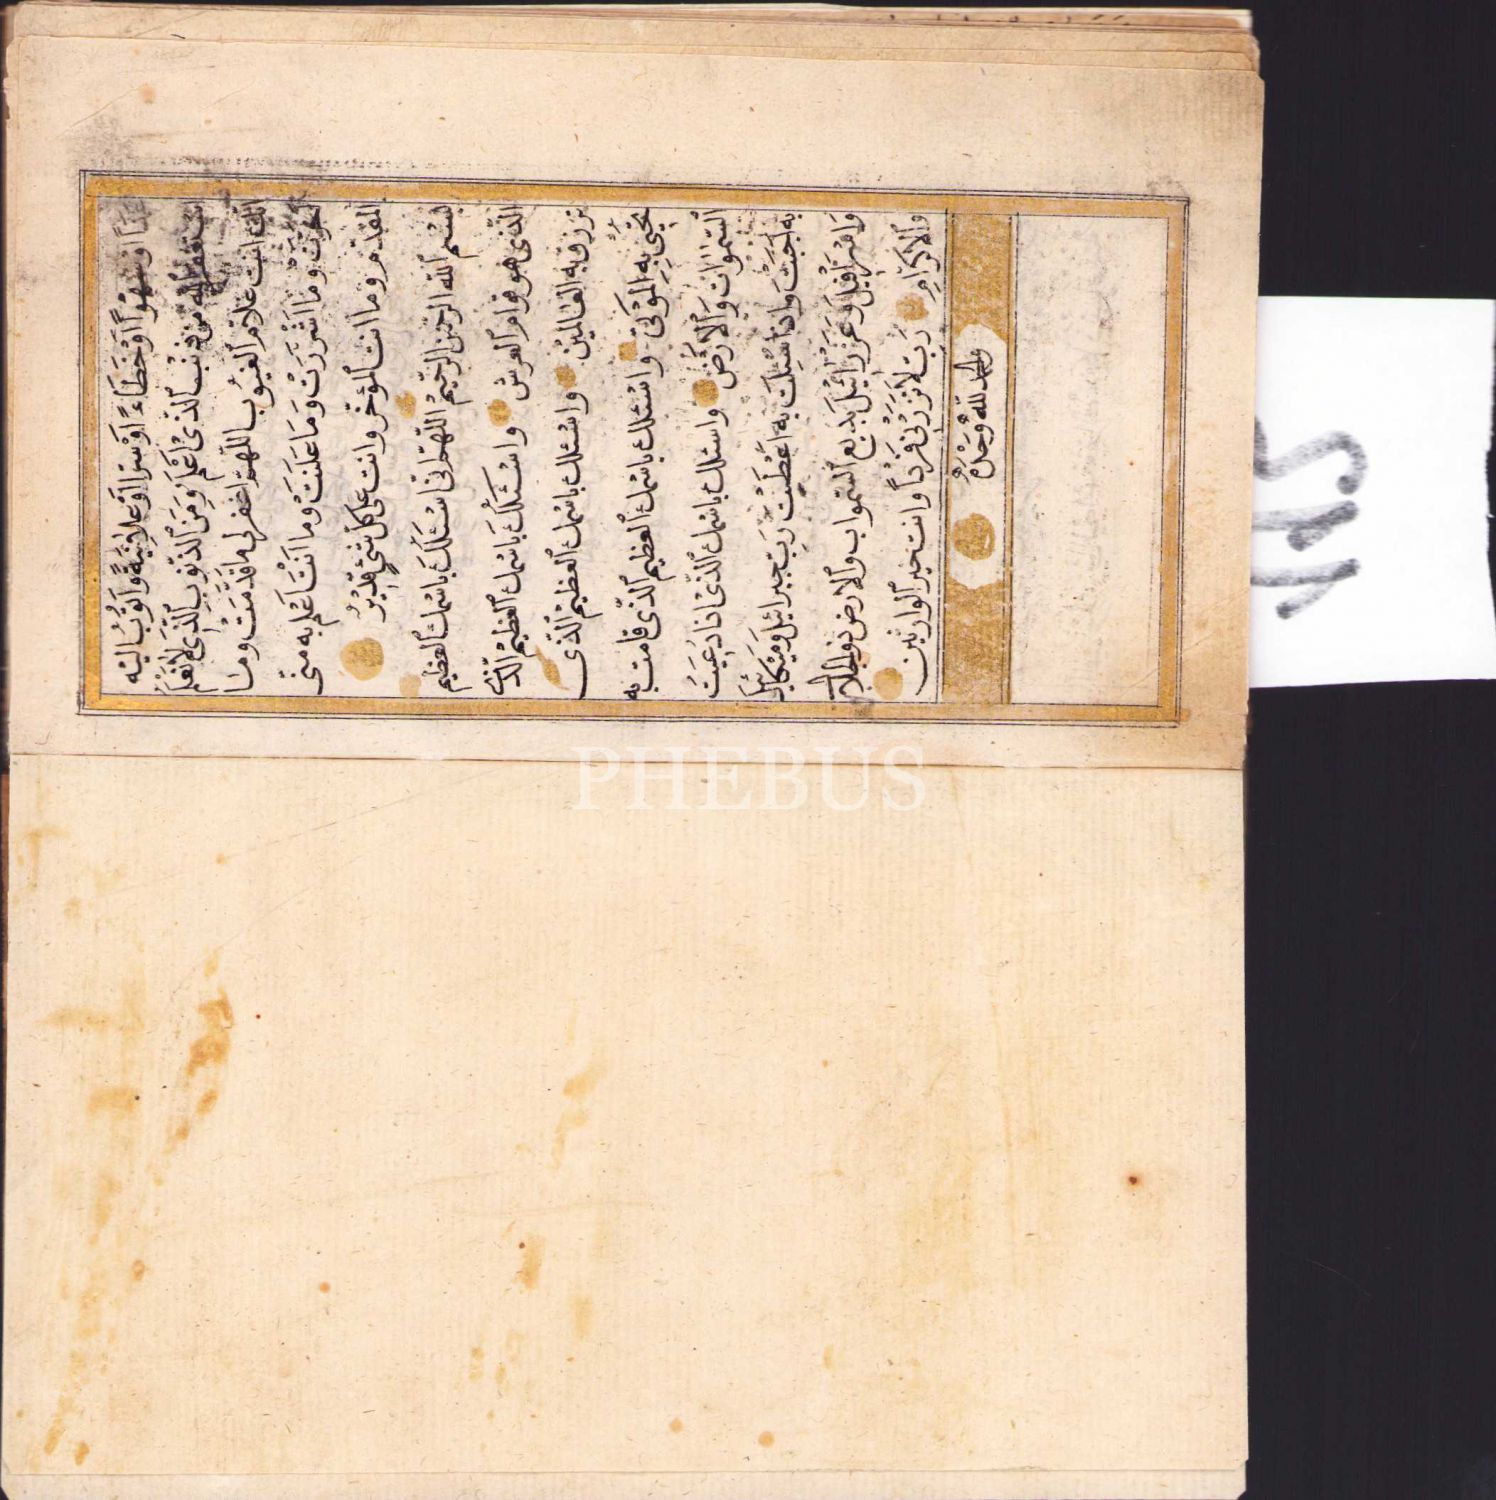 عمدًا او سهوًا او خطاءً او سرًا او علانيةً واتوب اليه
من الذنب الذى اعلم ومن الذنب الذى لا اعلم
انك انت علام الغيوب اللهم اغفر لى ما قدمت وما
اخرت وما اسررت وما اعلنت وما انت اعلم به منى
المقدم وما انت المؤخر وانت على كل شئ قدير
بسم الله الرحمن الرحيم اللهم انى اسئلك باسمك العظيم
الذى هو قوام العرش واسئلك باسمك العظيم الذى
ترزق به العالمين واسئلك باسمك العظيم الذى
يحيى به الموتى واسئلك باسمك العظيم الذى قامت به
السموات والارض واسئلك باسمك الذى اذا دعيت
به اجبت واذا سئلت به اعطيت رب جبرائيل وميكائيل
واسرافيل وعزرائيل بديع السموات والارض ذو الجلال
والاكرام رب لا تذرنى فردًا وانت خير الوارثين
والحمد لله وحده
PHEBUS